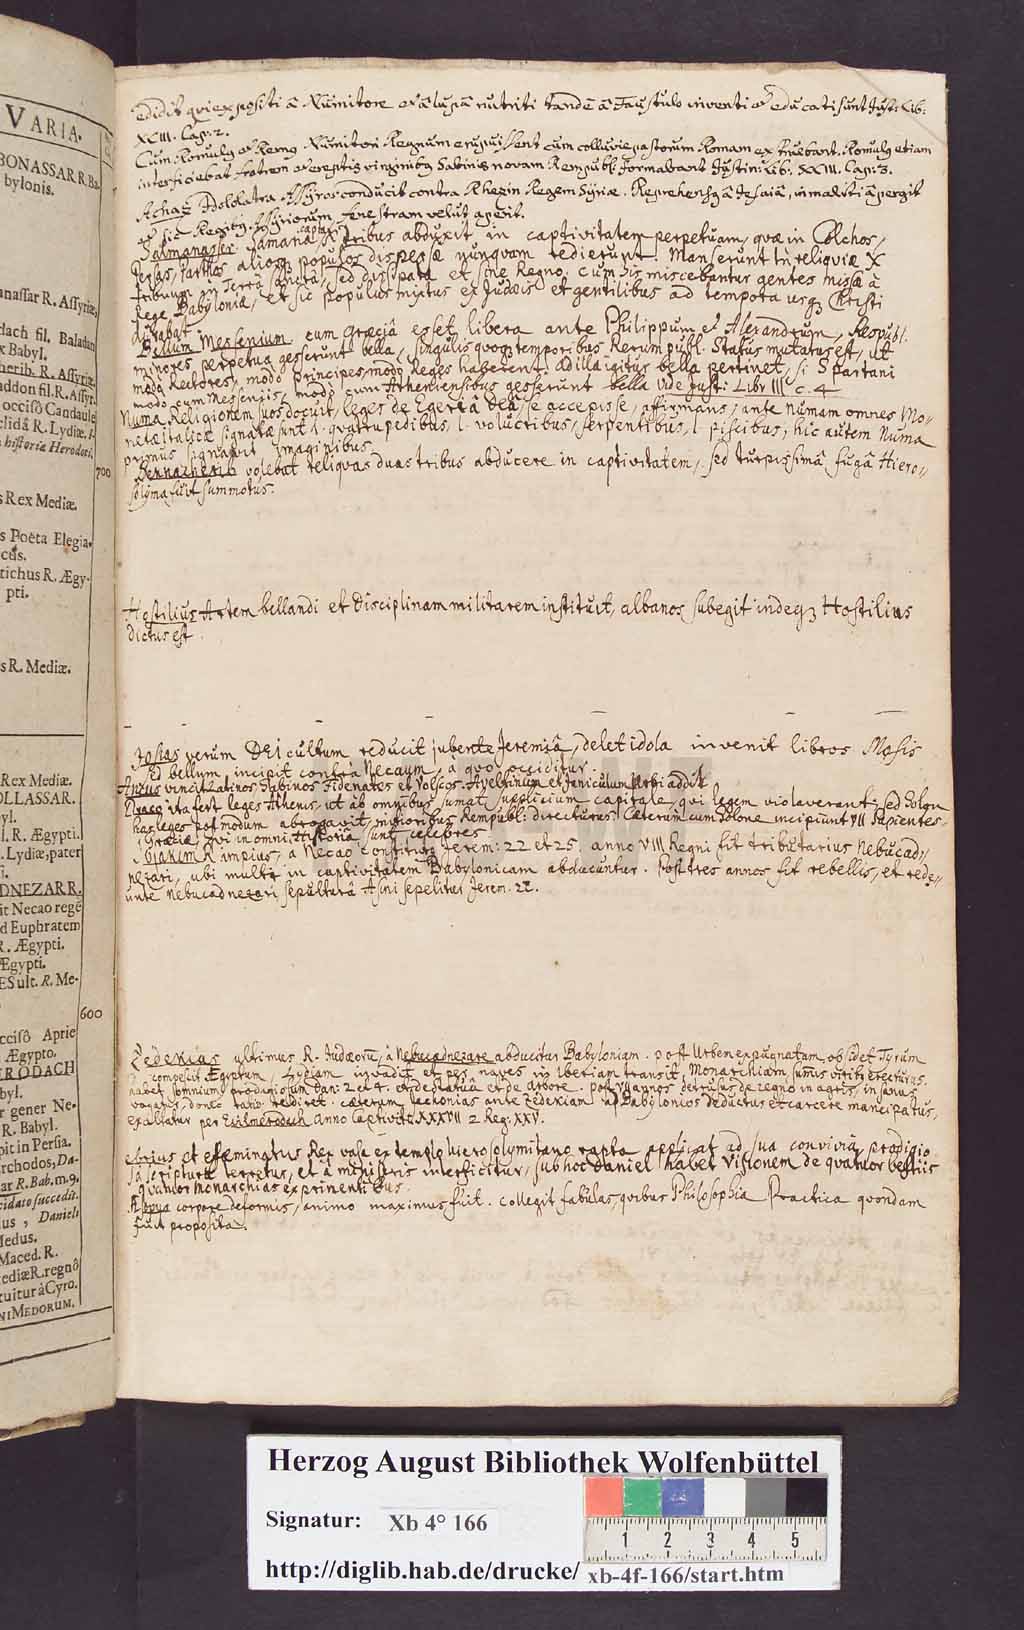 VARIA.
BONASSAR R. Ba-
bylonis.
anassar R. Assyriæ,
dach fil. Baladan
x Babyl.
herib. R. Assyriæ.
addon fil. R. Assyr.
occisô Candaule
clidâ R. Lydiæ, i-
historiæ Herodoti.
700
s Rex Mediæ.
s Poëta Elegia-
cus.
tichus R. Ægy-
pti.
s R. Mediæ.
Rex Mediæ.
OLLASSAR.
yl.
l. R. Ægypti.
. Lydiæ, pater
i.
DNEZAR R.
it Necao regē
d Euphratem
R. Ægypti.
Ægypti.
ES ult. R. Me-
600
ccisô Aprie
Ægypto.
ERODACH
byl.
r gener Ne-
R. Babyl.
pit in Persia.
rchodos, Da-
ar R. Bab. m. 9.
cidato succedit.
us, Danieli
Medus.
Maced. R.
ediæ R. regnô
tuitur à Cyro.
NI MEDORUM.
edidit qui expositi â Numitore et â lupâ nutriti tandē â Faustulo inventi et educati sunt Just: Lib:
XLIII. Cap: 2.
Cum Romulus et Remus Numitori Regnum eripuissent cum colluvie pastorum Romam exstruebant. Romulus etiam
interficiebat fratrem et ereptis virginibus Sabinis novam Rempubl. formabant Justin: Lib: XLIII. Cap: 3.
Achaz Idololatra Assyros conducit contra Rhezin Regem Syriæ. Reprehensus â Jesaiâ, in malitiâ pergit
et sic Regibus Assyriorum fenestram velut aperit.
Salmanasser Samariâ captâ X tribus abduxit in captivitatem perpetuam, quæ in Colchos,
Persas, Parthos aliosq populos dispersæ nunquam redierunt. Manserunt tñ reliquiæ X
tribuum in terrâ Sanctâ, sed dissipatæ et sine Regno. Cum his miscebantur gentes missæ à
Rege Babyloniæ, et sic populus mixtus ex Judæis et gentilibus ad tempora usq Christi
durabat
Bellum Messenium. cum Græciâ esset libera ante Philippum et Alexandrum, Respubl.
minores perpetua gesserunt bella, singulis quoq temporibus Rerumpubl. Status mutatus est, ut
modo Rectores, modò Principes, modò Reges haberent. Ad illa igitur bella pertinet, si Spartani
modò cum Messeniis, modò cum Atheniensibus gesserunt bella vide Just: Libr III c. 4
Numa Religionem suos docuit, leges de Egeriâ Deâ se accepisse, affirmans, ante Numam omnes Mo-
netæ italicæ signatæ sunt l. quatrupedibus, l. volucribus, serpentibus, l piscibus, hic autem Numa
primus signavit imaginibus
Sennacherib volebat reliquas duas tribus abducere in captivitatem, sed turpissimâ fugâ Hiero-
solyma fuit summotus.
Hostilius Artem bellandi et Disciplinam militarem instituit, albanos subegit indeq Hostilius
dictus est.
Josias verum DEI cultum reducit jubente Jeremiâ, delet idola invenit libros Mosis
sed bellum incipit contra Necaum, â quo occiditur.
Ancus vincit Latinos Sabinos Fidenates et Volscos. Aventinum et Janiculum Urbi addit
Draco ita fert leges Athenis, ut ab omnibus sumat supplicium capitale, qui legem violaverant; sed Solon
has leges postmodum abrogavit, mitioribus Rempubl: directurus. Cæterum cum Solone incipiunt VII Sapientes
Græciæ, qui in omni Historiâ sunt celebres
Jojakim R impius, a Necao constitutus Jerem: 22 et 25. anno VIII Regni fit tributarius Nebucad-
nezari, ubi multi in captivitatem Babylonicam abducuntur. Post tres annos fit rebellis, et rede-
unte Nebucadnezari sepulturâ Asini sepelitur Jerem. 22.
Zedekias ultimus R. Judæorū, à Nebucadnezare abducitur Babyloniam. post Urbem expugnatam, obsidet Tyrum
compescit Ægyptum, Lydiam invadit et per naves in Iberiam transit, Monarchiam summis viribus erecturus.
habet somnium prodigiosum Dan: 2 et 4. et de statuâ et de arbore. post magnos detrusus de regno in agris, insanus
vagatus, donec ratio rediret. cæterum Jechonias ante Zedekiam ad Babylonios deductus et carcere mancipatus,
exaltatur per Evilmerodach Anno Captivitatis XXXVII 2 Reg: XXV.
ebrius et effeminatus Rex vasa ex templo hierosolymitano rapta applicat ad sua convivia, prodigio-
sâ scripturâ terretur, et â ministris interficitur, sub hoc Daniel habet Visionem de quatuor bestiis
quatuor monarchias exprimentibus.
Æsopus corpore deformis, animo maximus fuit. collegit fabulas, quibus Philosophia Practica quondam
fuit proposita.
Herzog August Bibliothek Wolfenbüttel
Signatur: Xb 4° 166
1 2 3 4 5
http://diglib.hab.de/drucke/ xb-4f-166/start.htm